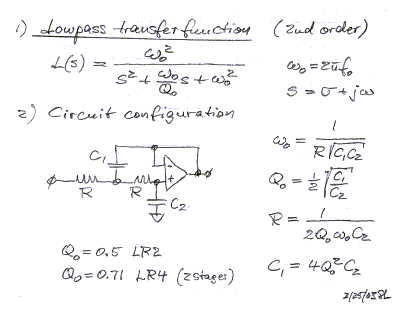 1) Lowpass transfer function (2nd order)
L(s) = ω₀² / (s² + (ω₀/Q₀)s + ω₀²)
ω₀ = 2πf₀
s = σ + jω
2) Circuit configuration
C₁
R R
C₂
- +
ω₀ = 1 / (R√(C₁C₂))
Q₀ = 1/2 √(C₁/C₂)
R = 1 / (2Q₀ω₀C₂)
C₁ = 4Q₀²C₂
Q₀ = 0.5 LR2
Q₀ = 0.71 LR4 (2 stages)
2/25/03 SL